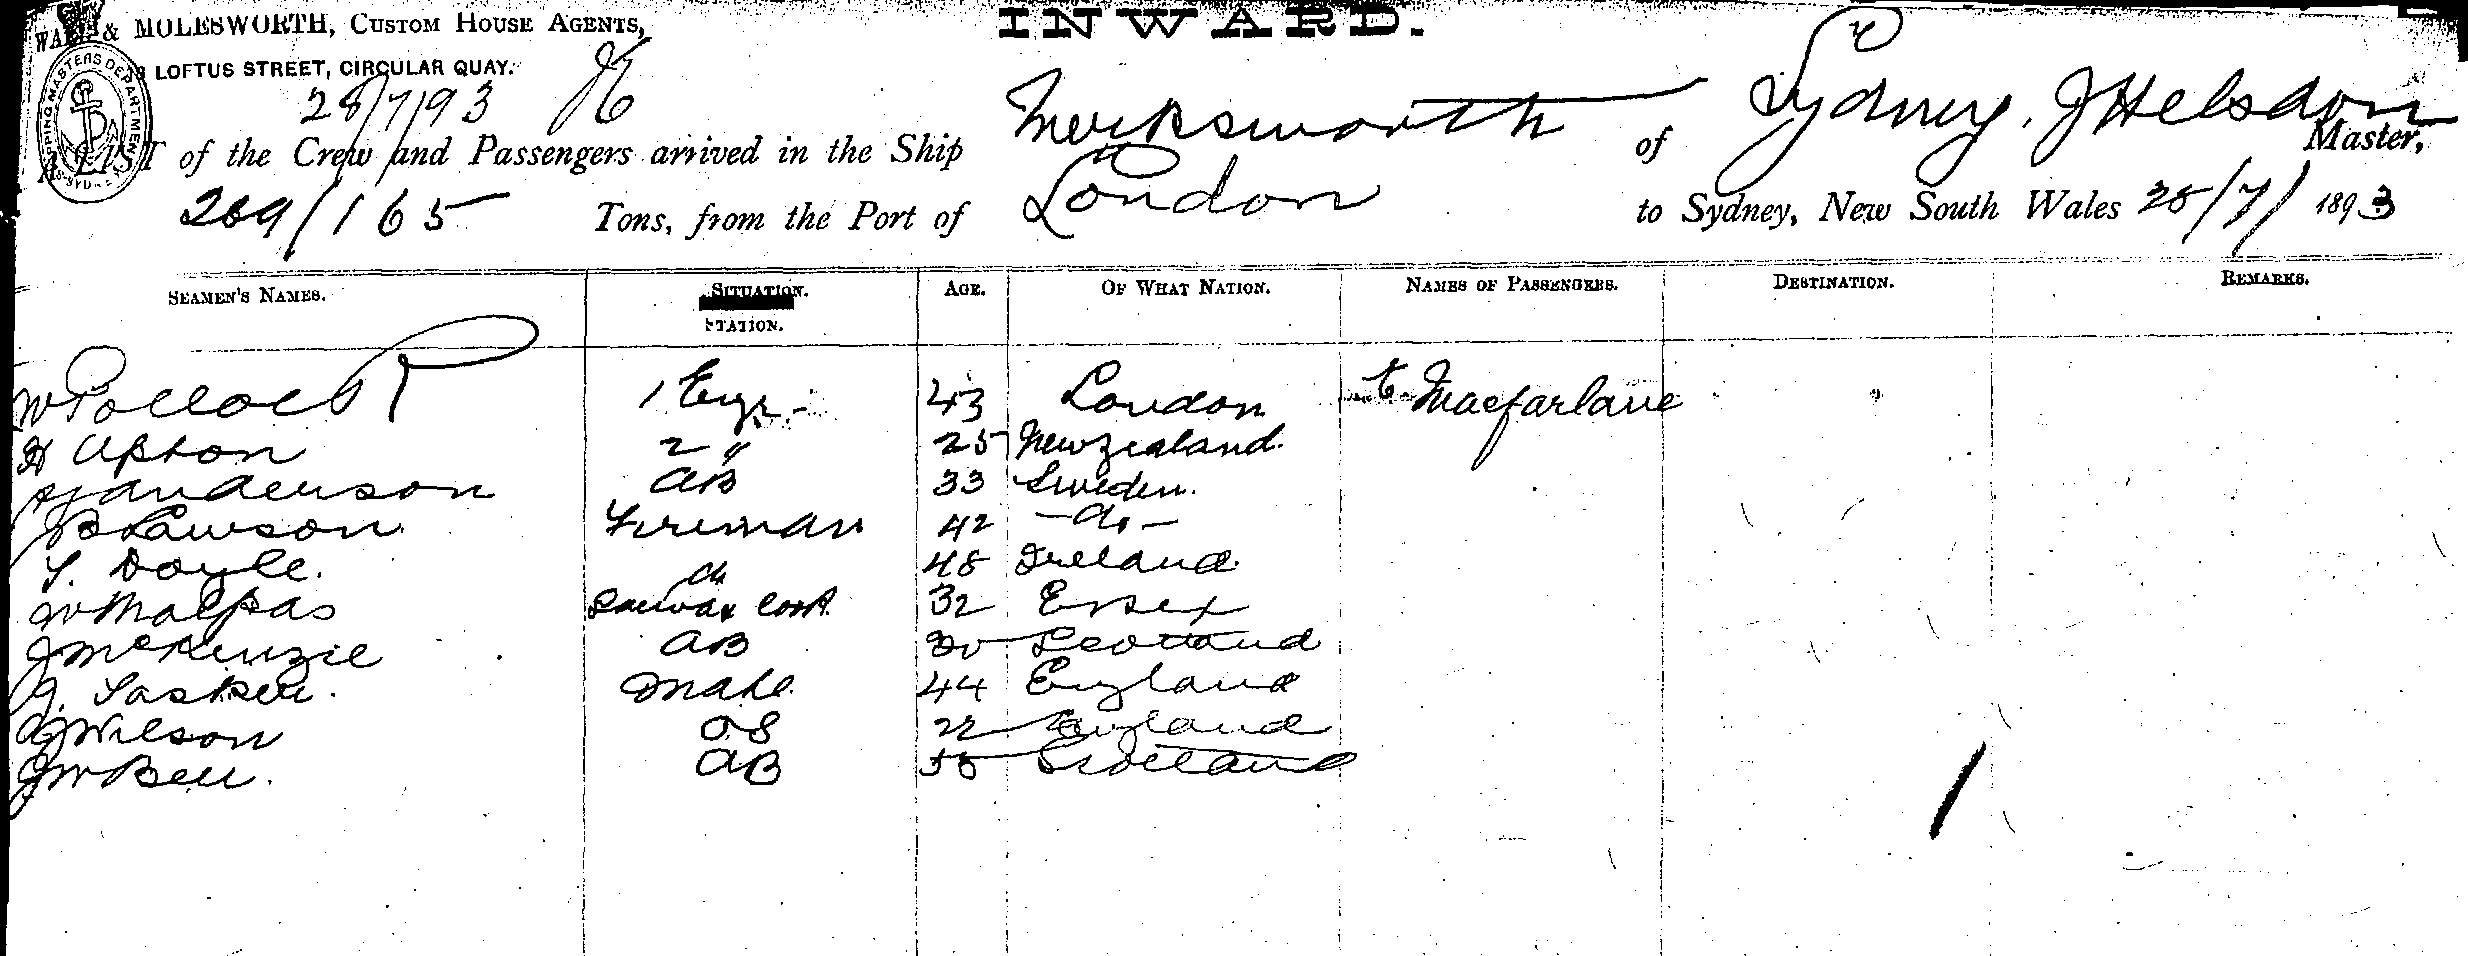 & MOLESWORTH, CUSTOM HOUSE AGENTS,
INWARD.
LOFTUS STREET, CIRCULAR QUAY.
28/7/93
SHIPPING MASTERS DEPARTMENT SYDNEY
A LIST of the Crew and Passengers arrived in the Ship Merksworth of Sydney, J Helsdon Master,
269/165 Tons, from the Port of London to Sydney, New South Wales 28/7/ 1893
SEAMEN'S NAMES. SITUATION. STATION. AGE. OF WHAT NATION. NAMES OF PASSENGERS. DESTINATION. REMARKS.
W Pollock 1 Engr. 43 London Macfarlane
H Upton 2 " 25 New Zealand.
Anderson AB 33 Sweden.
B Lawson Fireman 42 - do -
Doyle. do 48 Ireland.
W Malpas Cook 32 Essex
J McKenzie AB 30 Scotland
Mate. 44 England
Wilson OS 22 England
J W Bell. AB Scotland